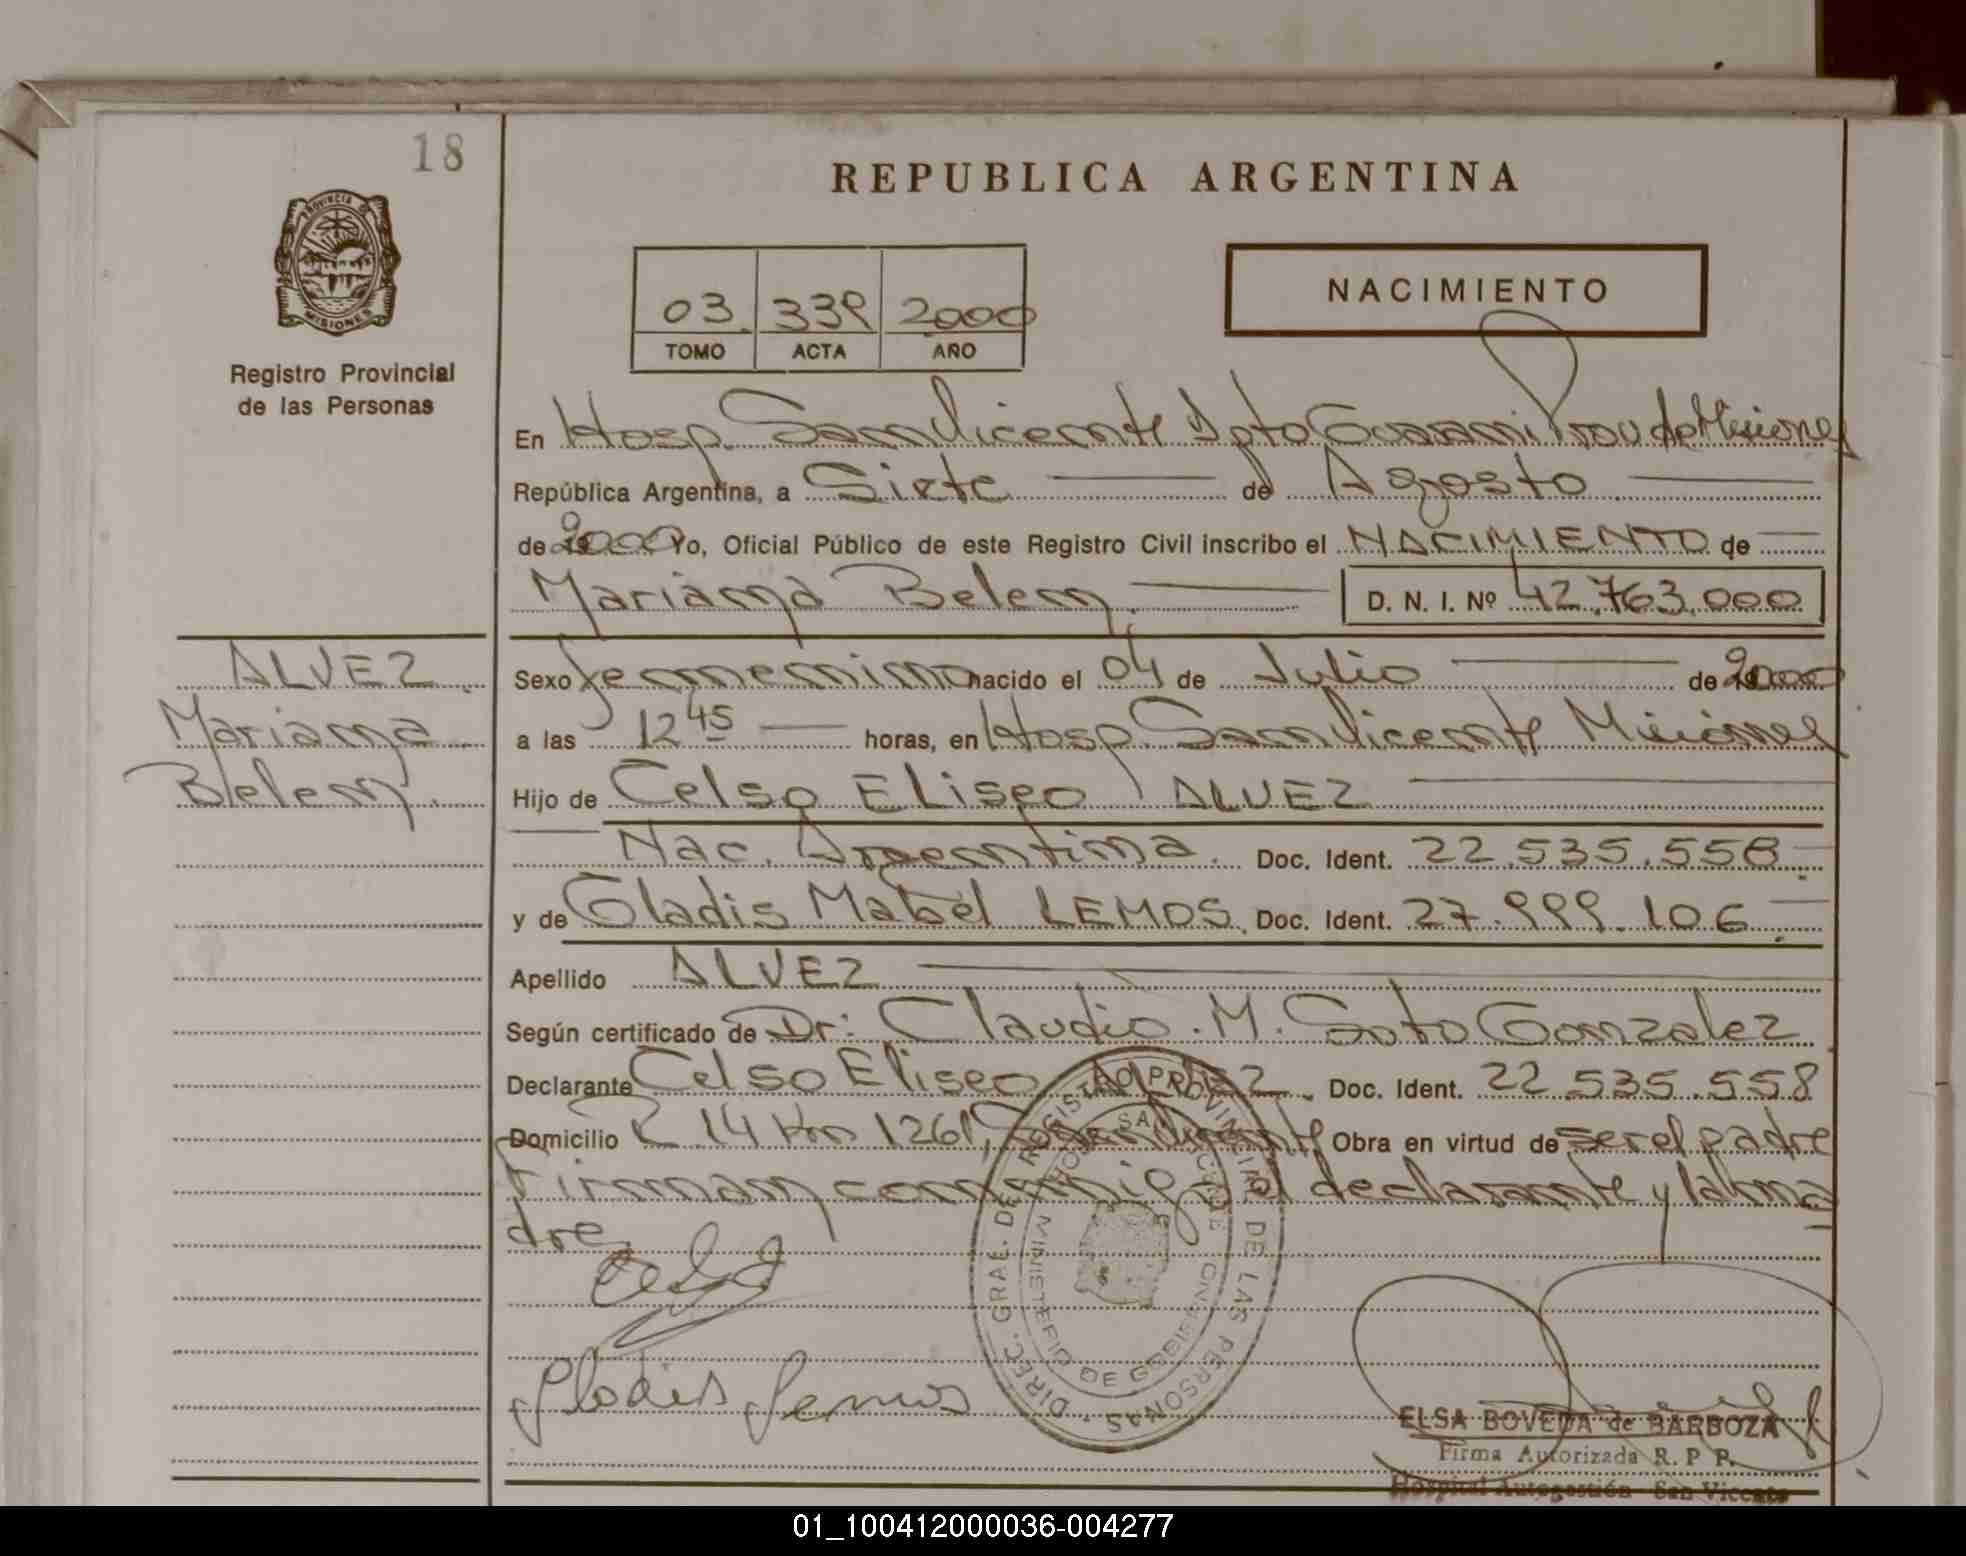 18
REPUBLICA ARGENTINA
PROVINCIA DE
MISIONES
Registro Provincial
de las Personas
03 339 2000
TOMO ACTA AÑO
NACIMIENTO
En Hosp. San Vicente Dpto Guarani Prov de Misiones
República Argentina, a Siete de Agosto
de 2000 Yo, Oficial Público de este Registro Civil inscribo el NACIMIENTO de
Mariana Belen. D. N. I. Nº 42.763.000
ALVEZ
Mariana
Belen.
Sexo femenino nacido el 04 de Julio de 2000
a las 12 45 horas, en Hosp. San Vicente Misiones
Hijo de Celso ELiseo ALVEZ
Nac. Argentina. Doc. Ident. 22.535.558
y de Gladis Mabel LEMOS. Doc. Ident. 27.999.106
Apellido ALVEZ
Según certificado de Dr: Claudio. M. Soto Gonzalez
Declarante Celso Eliseo ALVEZ. Doc. Ident. 22.535.558
Domicilio R 14 Km 1261, San Vicente Obra en virtud de ser el padre
Firman con migo el declarante y la ma
dre
DIREC. GRAL. DEL REGISTRO PROVINCIAL DE LAS PERSONAS
MINISTERIO DE GOBIERNO
HOSP. SAN VICENTE
Gladis Lemos
ELSA BOVEDA de BARBOZA
Firma Autorizada R. P P.
Hospital Autogestión San Vicente
01_100412000036-004277